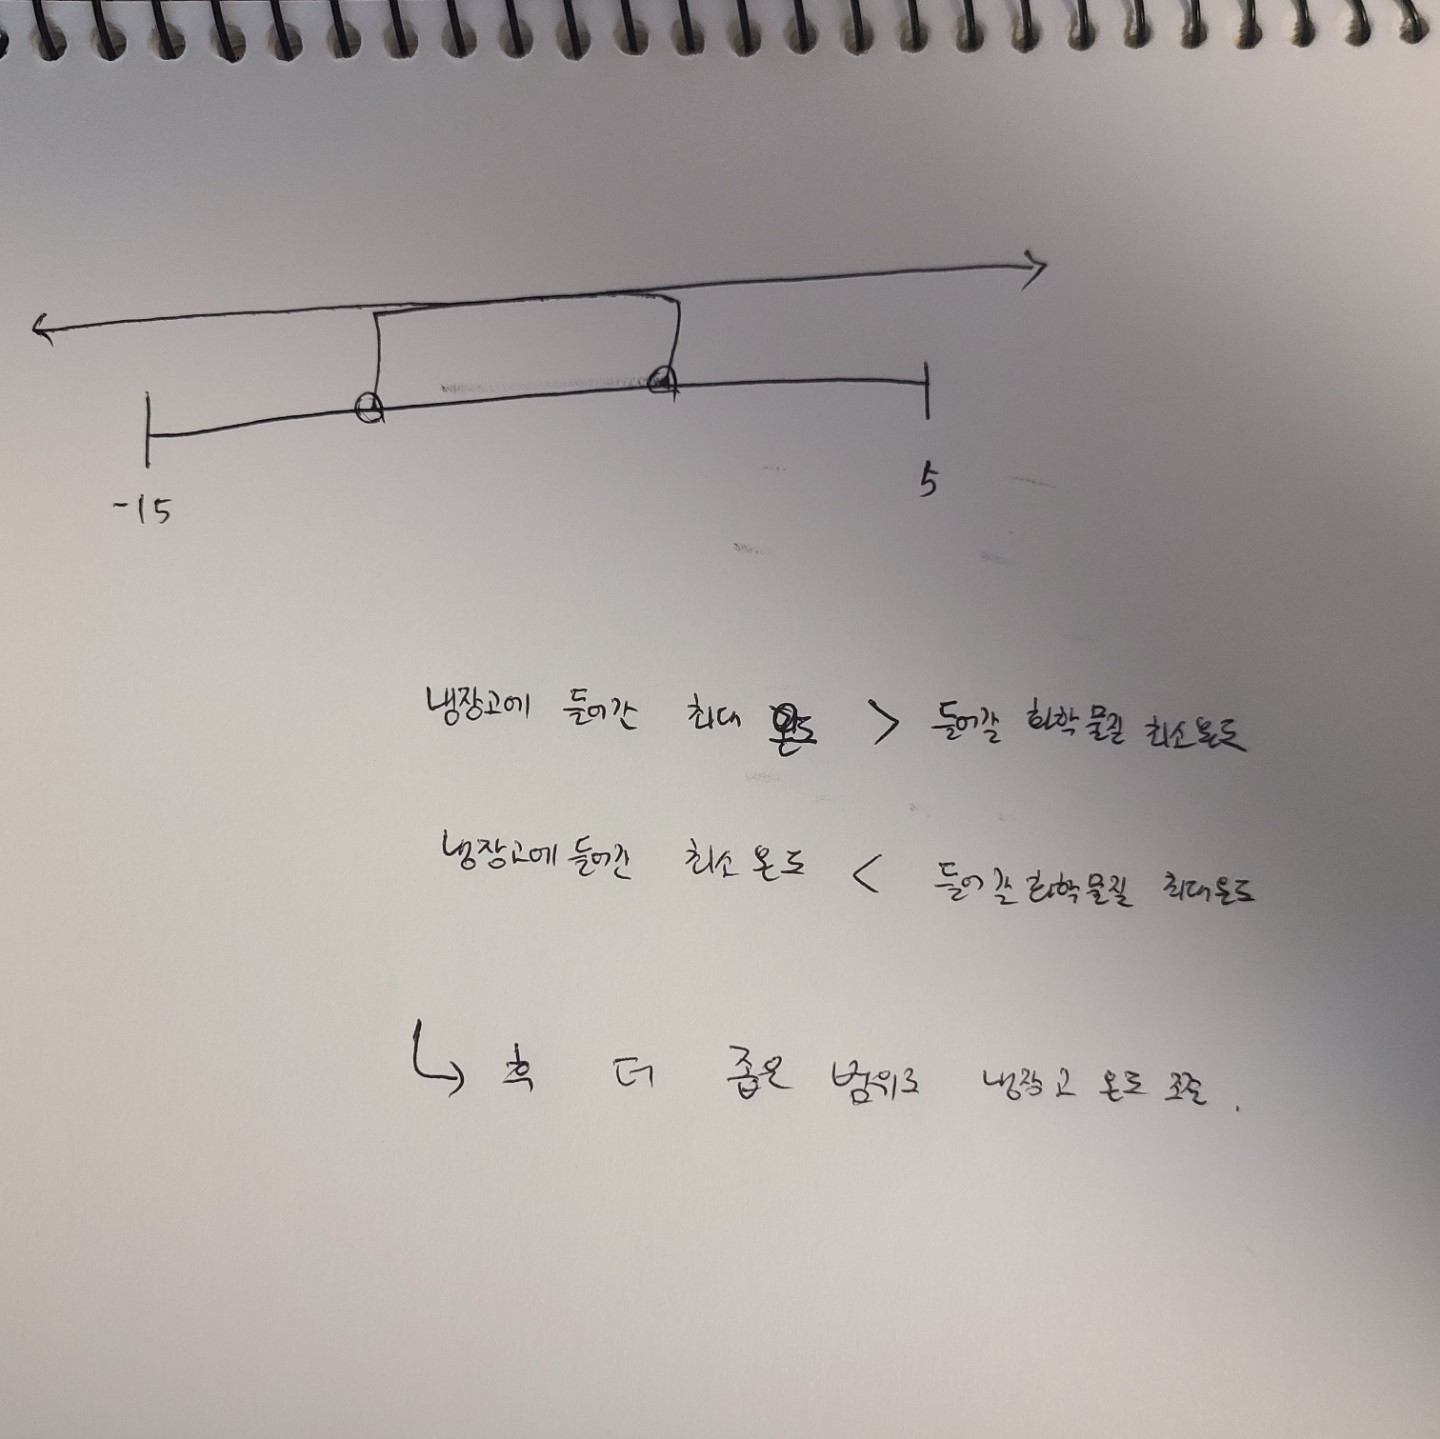 -15
5
냉장고에 들어간 최대 온도 > 들어갈 화학물질 최소온도
냉장고에 들어간 최소 온도 < 들어갈 화학물질 최대온도
↳ 후 더 좁은 범위로 냉장고 온도 조준.